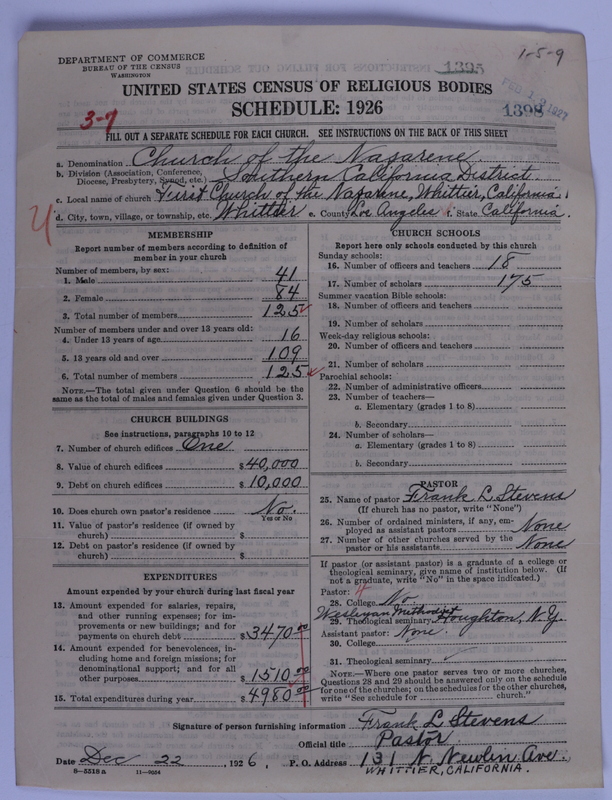 1-5-9
DEPARTMENT OF COMMERCE
BUREAU OF THE CENSUS
WASHINGTON
1395
UNITED STATES CENSUS OF RELIGIOUS BODIES
SCHEDULE: 1926
1927
1398
3-7
FILL OUT A SEPARATE SCHEDULE FOR EACH CHURCH. SEE INSTRUCTIONS ON THE BACK OF THIS SHEET
a. Denomination Church of the Nazarene
b. Division (Association, Conference, Diocese, Presbytery, Synod, etc.) Southern California District
c. Local name of church First Church of the Nazarene, Whittier, California.
d. City, town, village, or township, etc. Whittier e. County Los Angeles f. State California.
MEMBERSHIP
Report number of members according to definition of
member in your church
Number of members, by sex:
1. Male 41
2. Female 84
3. Total number of members 125
Number of members under and over 13 years old:
4. Under 13 years of age 16
5. 13 years old and over 109
6. Total number of members 125
NOTE.—The total given under Question 6 should be the
same as the total of males and females given under Question 3.
CHURCH BUILDINGS
See instructions, paragraphs 10 to 12
7. Number of church edifices One
8. Value of church edifices $40,000
9. Debt on church edifices $10,000
10. Does church own pastor's residence No.
Yes or No
11. Value of pastor's residence (if owned by
church) $
12. Debt on pastor's residence (if owned by
church) $
EXPENDITURES
Amount expended by your church during last fiscal year
13. Amount expended for salaries, repairs,
and other running expenses; for im-
provements or new buildings; and for
payments on church debt $3470 00
14. Amount expended for benevolences, in-
cluding home and foreign missions; for
denominational support; and for all
other purposes $1510 00
15. Total expenditures during year $4980 00
CHURCH SCHOOLS
Report here only schools conducted by this church
Sunday schools:
16. Number of officers and teachers 18
17. Number of scholars 175
Summer vacation Bible schools:
18. Number of officers and teachers
19. Number of scholars
Week-day religious schools:
20. Number of officers and teachers
21. Number of scholars
Parochial schools:
22. Number of administrative officers
23. Number of teachers—
a. Elementary (grades 1 to 8)
b. Secondary
24. Number of scholars—
a. Elementary (grades 1 to 8)
b. Secondary
PASTOR
25. Name of pastor Frank L. Stevens
(If church has no pastor, write "None")
26. Number of ordained ministers, if any, em-
ployed as assistant pastors None
27. Number of other churches served by the
pastor or his assistants None
If pastor (or assistant pastor) is a graduate of a college or
theological seminary, give name of institution below. (If
not a graduate, write "No" in the space indicated.)
Pastor:
28. College No.
Wesleyan Methodist
29. Theological seminary Houghton, N. Y.
Assistant pastor: None.
30. College
31. Theological seminary
NOTE.—Where one pastor serves two or more churches,
Questions 28 and 29 should be answered only on the schedule
for one of the churches; on the schedules for the other churches,
write "See schedule for church."
Signature of person furnishing information Frank L. Stevens
Official title Pastor
Date Dec 22, 1926, P. O. Address 131 N Newlin Ave.
8-5518a 11-9024 WHITTIER, CALIFORNIA.